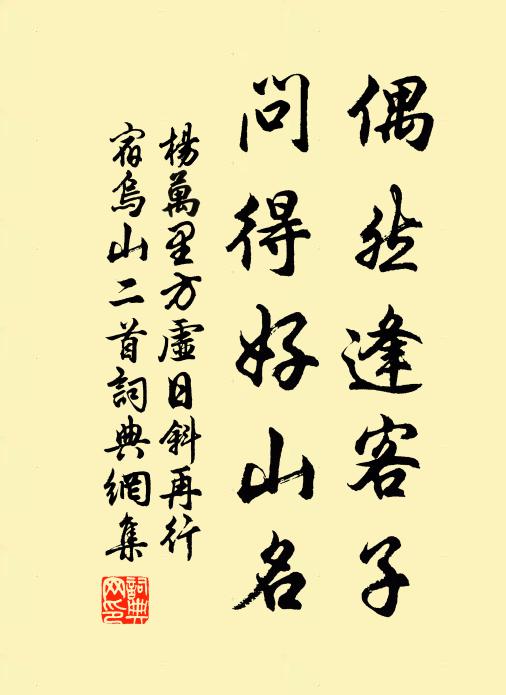 偶然逢客子
問得好山名
楊萬里方虛日斜再行
宿烏山二首詞典網集
詞典
网印